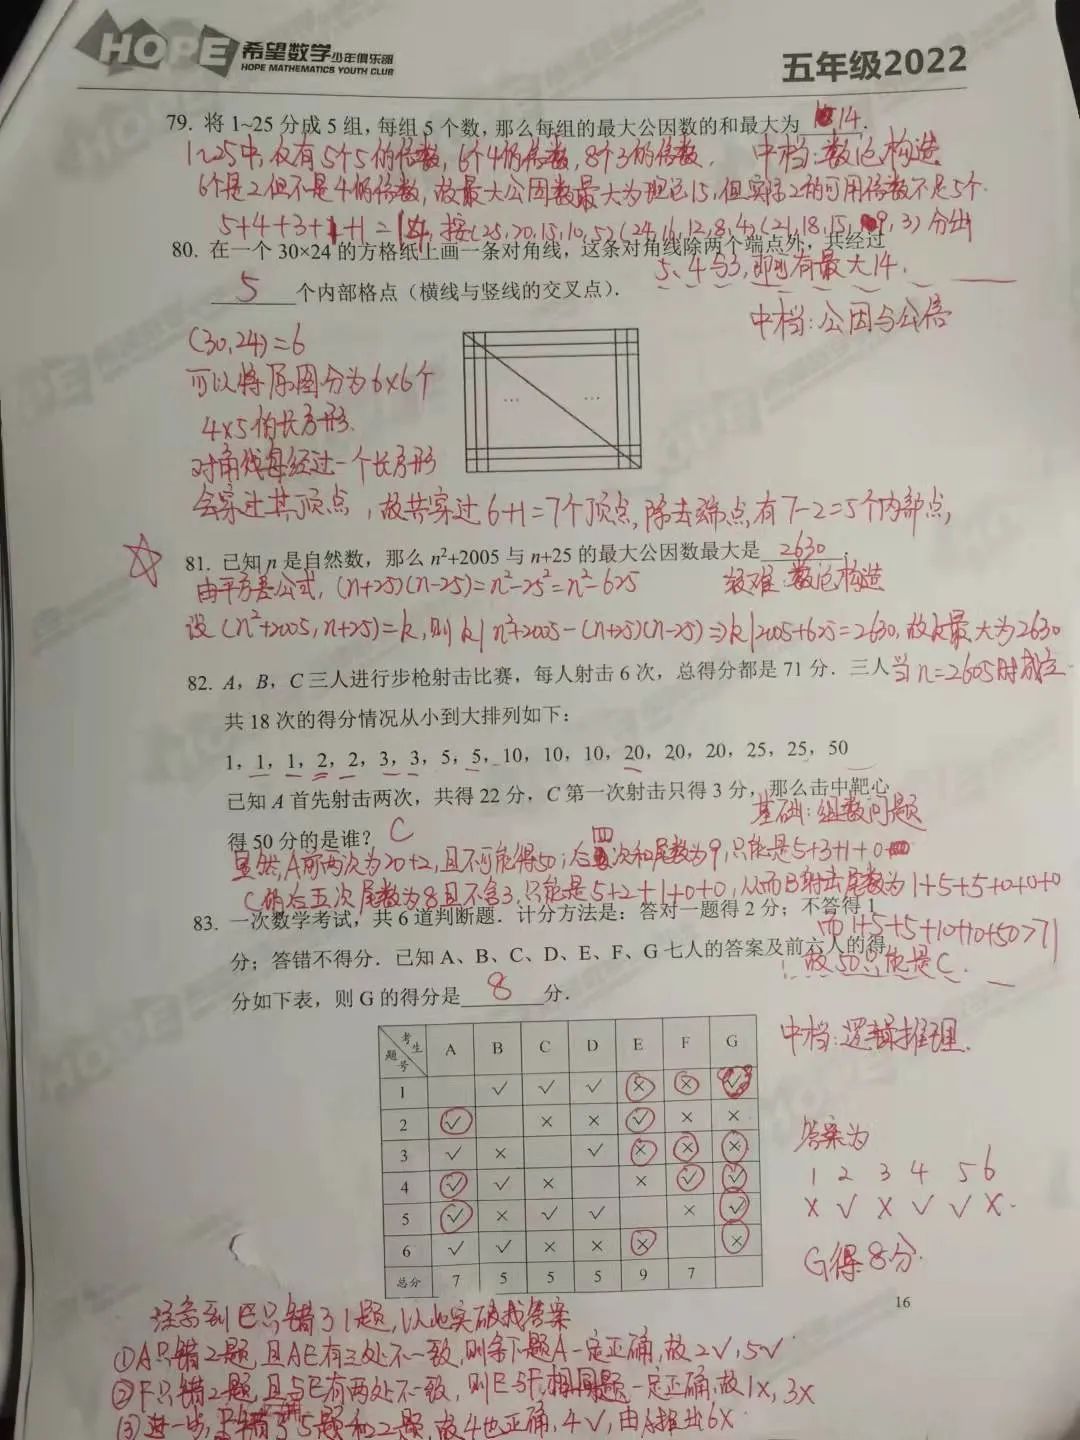 HOPE 希望数学少年俱乐部
HOPE MATHEMATICS YOUTH CLUB
五年级2022
79. 将 1~25 分成 5 组，每组 5 个数，那么每组的最大公因数的和最大为 14.
1~25中,仅有5个5的倍数,6个4的倍数,8个3的倍数. 中档:数论构造
6个是2但不是4的倍数,故最大公因数最大为理论15,但实际2的可用倍数不足5个.
5+4+3+1+1=14,按(25,20,15,10,5)(24,16,12,8,4)(21,18,15,9,3)分出
80. 在一个 30×24 的方格纸上画一条对角线，这条对角线除两个端点外，共经过
5、4与3,即也有最大14.
5 个内部格点（横线与竖线的交叉点）.
中档:公因与公倍
(30,24)=6
可以将原图分为6×6个
4×5的长方形.
对角线每经过一个长方形
会穿过其顶点,故共穿过6+1=7个顶点,除去端点,有7-2=5个内部点,
81. 已知 n 是自然数，那么 n²+2005 与 n+25 的最大公因数最大是 2630 .
由平方差公式,(n+25)(n-25)=n²-25²=n²-625 较难:数论构造
设(n²+2005,n+25)=k,则k|n²+2005-(n+25)(n-25)⇒k|2005+625=2630,故k最大为2630
82. A，B，C 三人进行步枪射击比赛，每人射击 6 次，总得分都是 71 分．三人
当n=2605时成立.
共 18 次的得分情况从小到大排列如下：
1，1，1，2，2，3，3，5，5，10，10，10，20，20，20，25，25，50
已知 A 首先射击两次，共得 22 分，C 第一次射击只得 3 分，那么击中靶心
基础:组数问题
得 50 分的是谁？ C
显然,A前两次为20+2,且不可能得50;后四次和尾数为9,只能是5+3+1+0
C的后五次尾数为8且不含3,只能是5+2+1+0+0,从而B射击尾数为1+5+5+0+0+0
83. 一次数学考试，共 6 道判断题．计分方法是：答对一题得 2 分；不答得 1
而1+5+5+10+10+50>71
分；答错不得分．已知 A、B、C、D、E、F、G 七人的答案及前六人的得
故50只能是C.
分如下表，则 G 的得分是 8 分．
中档:逻辑推理.
题号 考生 A B C D E F G
1 ✓ ✓ ✓ × × ✓
2 ✓ × × ✓ × ×
3 ✓ × ✓ × × ×
4 ✓ ✓ × × ✓ ✓
5 ✓ × ✓ ✓ × ✓
6 ✓ ✓ × × × ×
总分 7 5 5 5 9 7
答案为
1 2 3 4 5 6
× ✓ × ✓ ✓ ×.
G得8分.
16
注意到E只错了1题,以此突破找答案
①A只错2题,且AE有三处不一致,则余下题A一定正确,故2✓,5✓
②F只错2题,且与E有两处不一致,则E与F相同题一定正确,故1×,3×
③进一步,错了5题和2题,故4也正确,4✓,由A推出6×